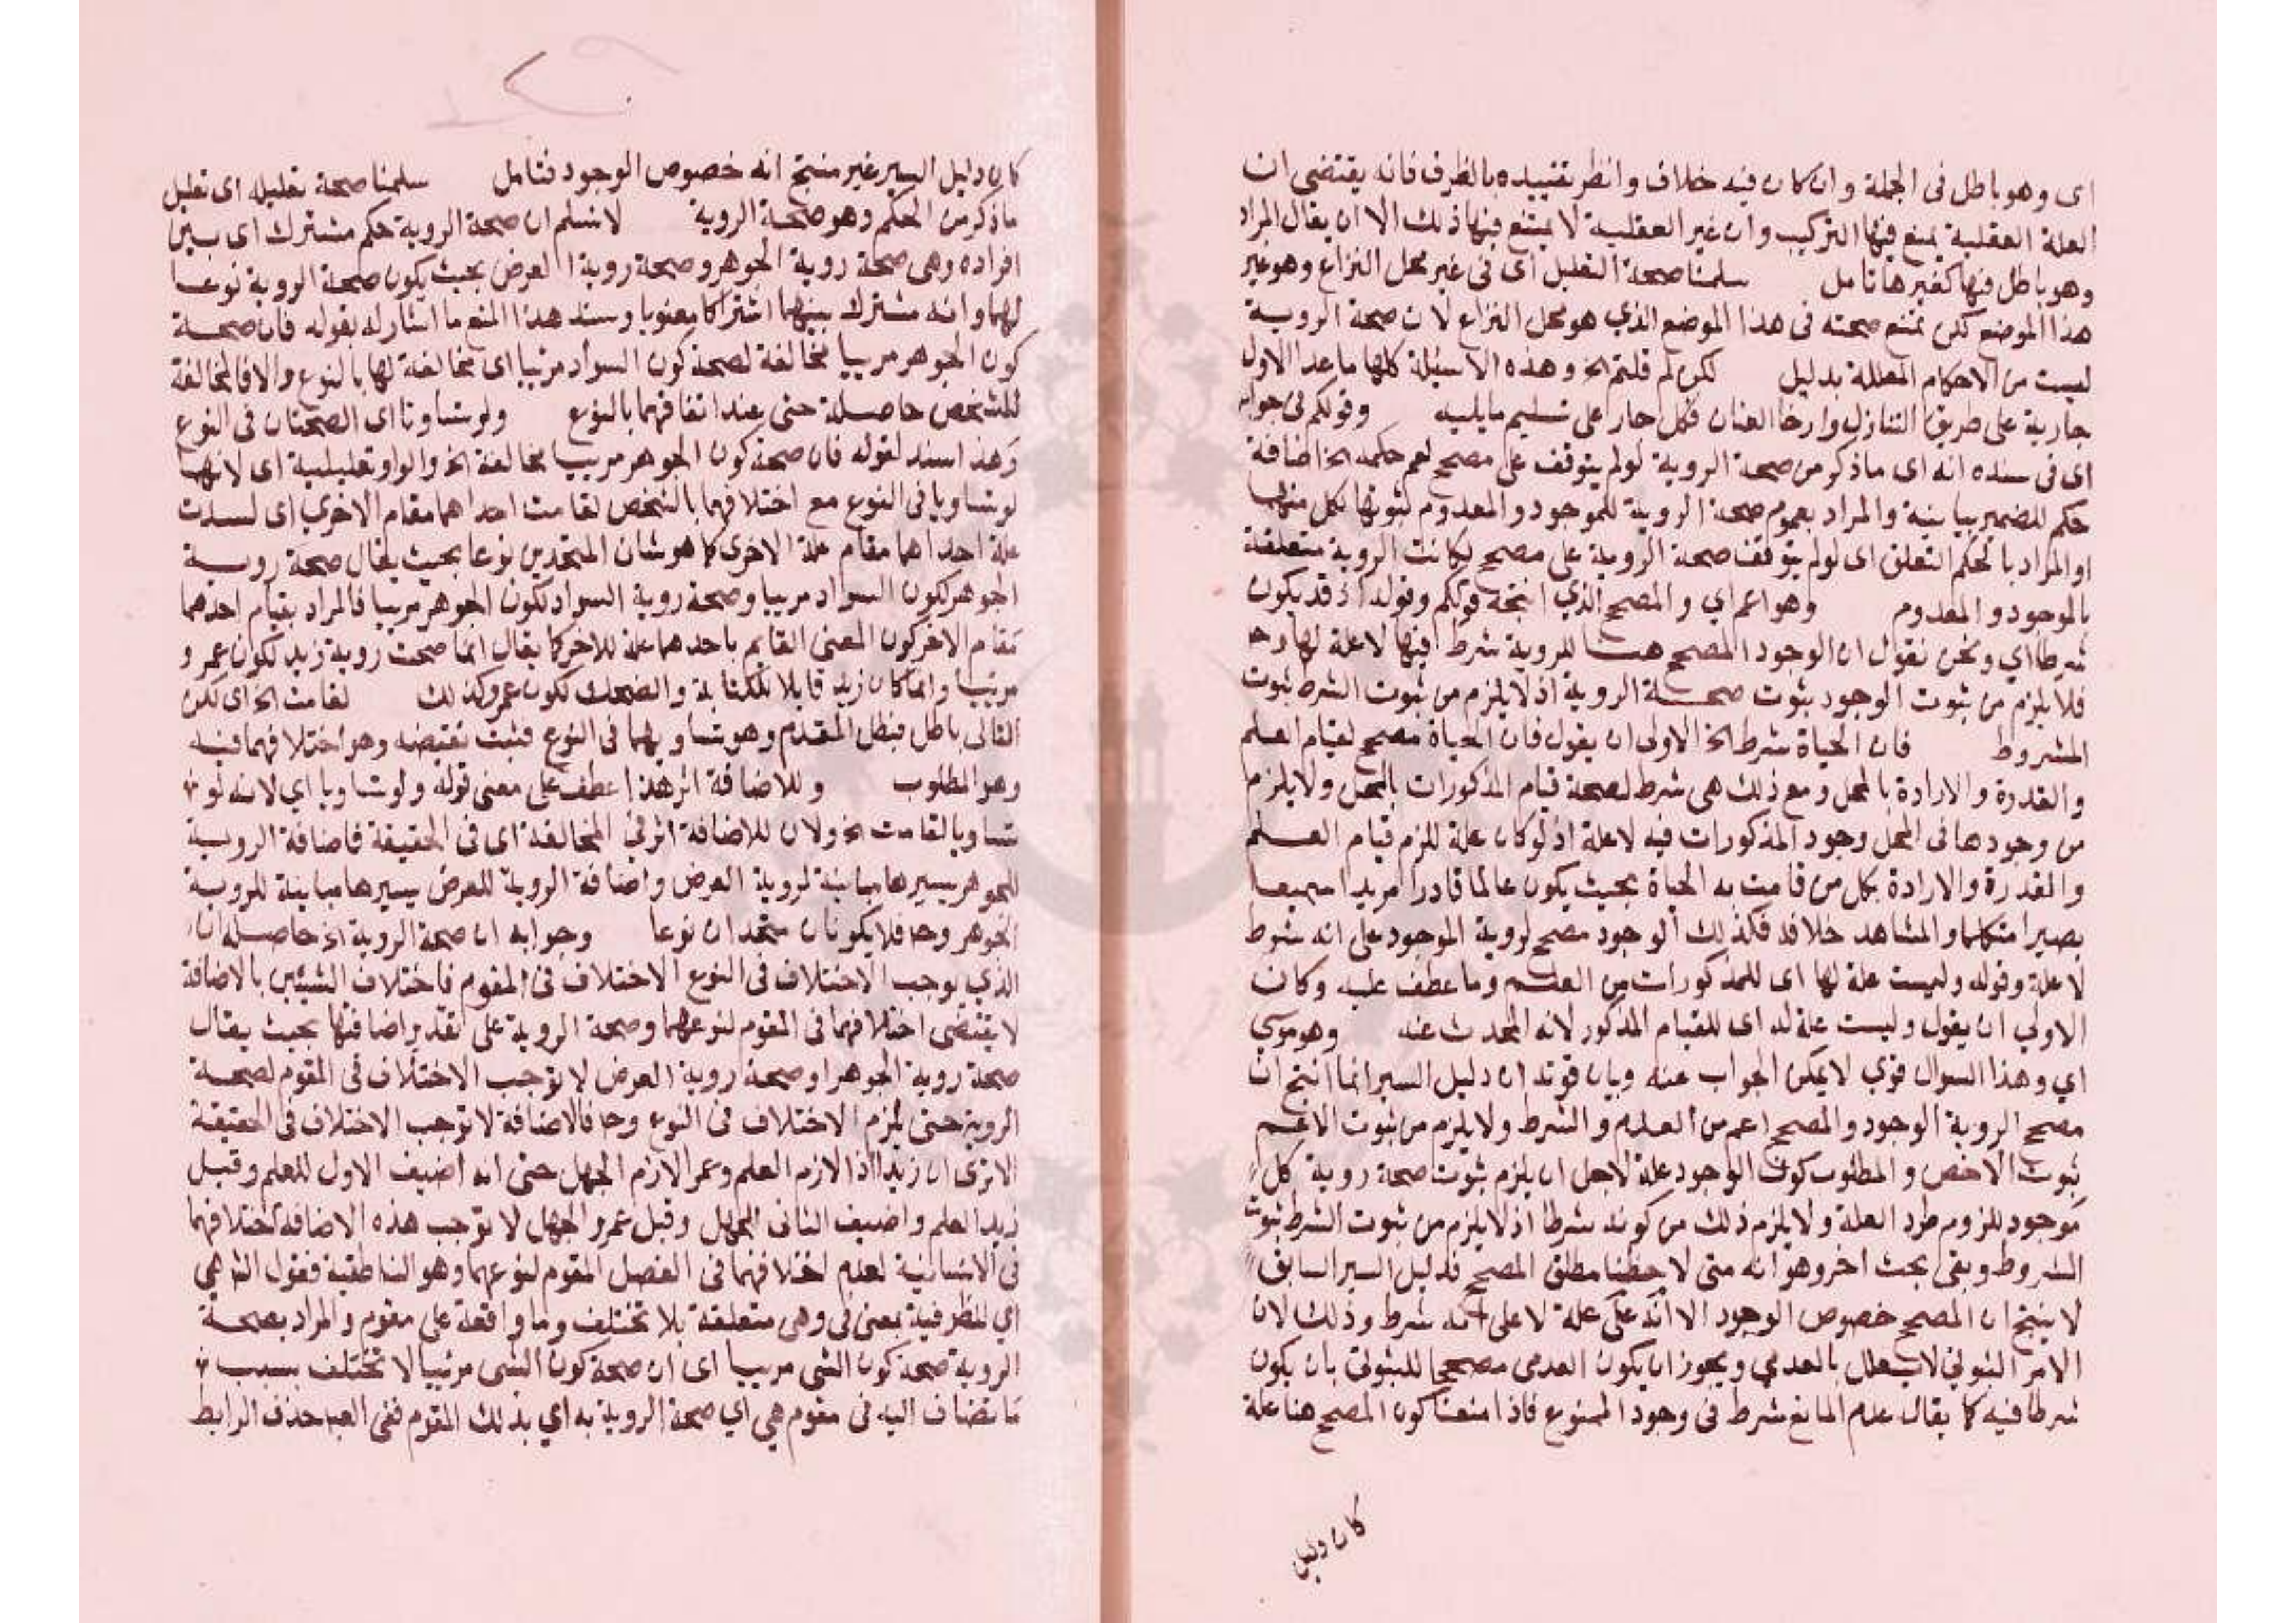 اى وهو باطل فى الجملة وان كان فيه خلاف وانظر تقييده بالظرف فانه يقتضى ان
العلة العقلية يمنع فيها التركيب وان غير العقلية لا يمتنع فيها ذلك الا ان يقال المراد
وهو باطل فيها كغيرها تامل سلمنا صحة التعليل اى فى غير محل النزاع وهو غير
هذا الموضع لكن تمنع صحته فى هذا الموضع الذي هو محل النزاع لان صحة الروية
ليست من الاحكام المعللة بدليل لكن لم قلتم الخ وهذه الاسيلة كلها ما عدا الاول
جارية على طريق التنازل وارخا العنان فكل جار على تسليم ما يليه وقولكم فى جوابه
اى فى سنده انه اى ما ذكر من صحة الروية لو لم يتوقف على مصحح لعم حكمه الخ اضافة
حكم للضمير بيانية والمراد بعموم صحة الروية للموجود والمعدوم ثبوتها لكل منهما
او المراد بالحكم التعلق اى لو لم يتوقف صحة الروية على مصحح لكانت الروية متعلقة
بالموجود والمعدوم وهو اعم اي والمصحح الذي انتجه قولكم وقوله اذ قد يكون
شرطا اي ونحن نقول ان الوجود المصحح هنا للروية شرط فيها لا علة لها وح
فلا يلزم من ثبوت الوجود ثبوت صحة الروية اذ لا يلزم من ثبوت الشرط ثبوت
المشروط فان الحياة شرط الخ الاولى ان يقول فان الحياة مصحح لقيام العلم
والقدرة والارادة بالمحل ومع ذلك هى شرط لصحة قيام المذكورات بالمحل ولا يلزم
من وجودها فى المحل وجود المذكورات فيه لا علة اذ لو كان علة للزم قيام العلم
والقدرة والارادة بكل من قامت به الحياة بحيث يكون عالما قادرا مريدا سميعا
بصيرا متكلما والمشاهد خلافه فكذلك الوجود مصحح لروية الموجود على انه شرط
لا علة وقوله وليست علة لها اى للمذكورات من العلم وما عطف عليه وكان
الاولى ان يقول وليست علة له اى للقيام المذكور لانه المحدث عنه وهو مرسي
اي وهذا السوال قوي لا يمكن الجواب عنه وبيان قوته ان دليل السبر انما انتج ان
مصحح الروية الوجود والمصحح اعم من العلة والشرط ولا يلزم من ثبوت الاعم
ثبوت الاخص والمطلوب كون الوجود علة لاجل ان يلزم ثبوت صحة روية كل
موجود للزوم طرد العلة ولا يلزم ذلك من كونه شرطا اذ لا يلزم من ثبوت الشرط ثبوت
المشروط وبقى بحث اخر وهو انه متى لاحظنا مطلق المصحح فدليل السبر السابق
لا ينتج ان المصحح خصوص الوجود الا انه على علة لا على انه شرط وذلك لان
الامر الثبوتى لا يعلل بالعدمي ويجوز ان يكون العدمى مصححا للثبوتى بان يكون
شرطا فيه كما يقال عدم المانع شرط فى وجود الممنوع فاذا منعنا كون المصحح هنا علة
كان دليل
كان دليل السبر غير منتج انه خصوص الوجود فتامل سلمنا صحة تعليله اى تعليل
ما ذكر من الحكم وهو صحة الروية لا نسلم ان صحة الروية حكم مشترك اى بين
افراده وهى صحة روية الجوهر وصحة روية العرض بحيث يكون صحة الروية نوعا
لهما وانه مشترك بينهما اشتراكا معنويا وسند هذا المنع ما اشار له بقوله فان صحة
كون الجوهر مرييا مخالفة لصحة كون السواد مرئيا اى مخالفة لها بالنوع والا فالمخالفة
للشخص حاصلة حتى عند اتفاقهما بالنوع ولو تساوتا اى الصحتان فى النوع
وهذا سند لقوله فان صحة كون الجوهر مرييا مخالفة الخ والواو تعليلية اى لانهما
لو تساويا فى النوع مع اختلافهما بالشخص لقامت احداهما مقام الاخري اى لسدت
علة احداهما مقام علة الاخرى كما هو شان المتحدين نوعا بحيث يقال صحة روية
الجوهر لكون السواد مرييا وصحة روية السواد لكون الجوهر مرييا فالمراد بقيام احدهما
مقام الاخر كون المعنى القايم باحدهما علة للاخر كما يقال انما صحت روية زيد لكون عمرو
مرييا وانما كان زيد قابلا للكتابة والضحك لكون عمرو كذلك لقامت الخ اى لكن
التالى باطل فبطل المقدم وهو تساويهما فى النوع فثبت نقيضه وهو اختلافهما فيه
وهو المطلوب وللاضافة اثر هذا عطف على معنى قوله ولو تساويا اي لانه لو
تساويا لقامت الخ ولان للاضافة اثر فى المخالفة اى فى الحقيقة فاضافة الروية
للجوهر يسيرها مباينة لروية العرض واضافة الروية للعرض يسيرها مباينة للروية
الجوهر وح فلا يكونان متحدان نوعا وجوابه ان صحة الروية الخ حاصله ان
الذي يوجب الاختلاف فى النوع الاختلاف فى المقوم فاختلاف الشيئين بالاضافة
لا يقتضى اختلافهما فى المقوم لنوعهما وصحة الروية على تقدير اضافتها بحيث يقال
صحة روية الجوهر او صحة روية العرض لا توجب الاختلاف فى المقوم لصحة
الروية حتى يلزم الاختلاف فى النوع وح فالاضافة لا توجب الاختلاف فى الحقيقة
الا ترى ان زيدا اذا لازم العلم وعمر الازم الجهل حتى انه اضيف الاول للعلم وقيل
زيد العلم واضيف الثانى للجهل وقيل عمرو الجهل لا توجب هذه الاضافة اختلافهما
فى الانسانية لعدم اختلافهما فى الفصل المقوم لنوعهما وهو الناطقية فقول الش هي
اي للظرفية بمعنى فى وهى متعلقة بلا تختلف وما واقعة على مقوم والمراد بصحة
الروية صحة كون الشى مرييا اى ان صحة كون الشى مرئيا لا تختلف بسبب
ما تضاف اليه فى مقوم هي اي صحة الروية به اي بذلك المقوم ففى العبا حذف الرابط